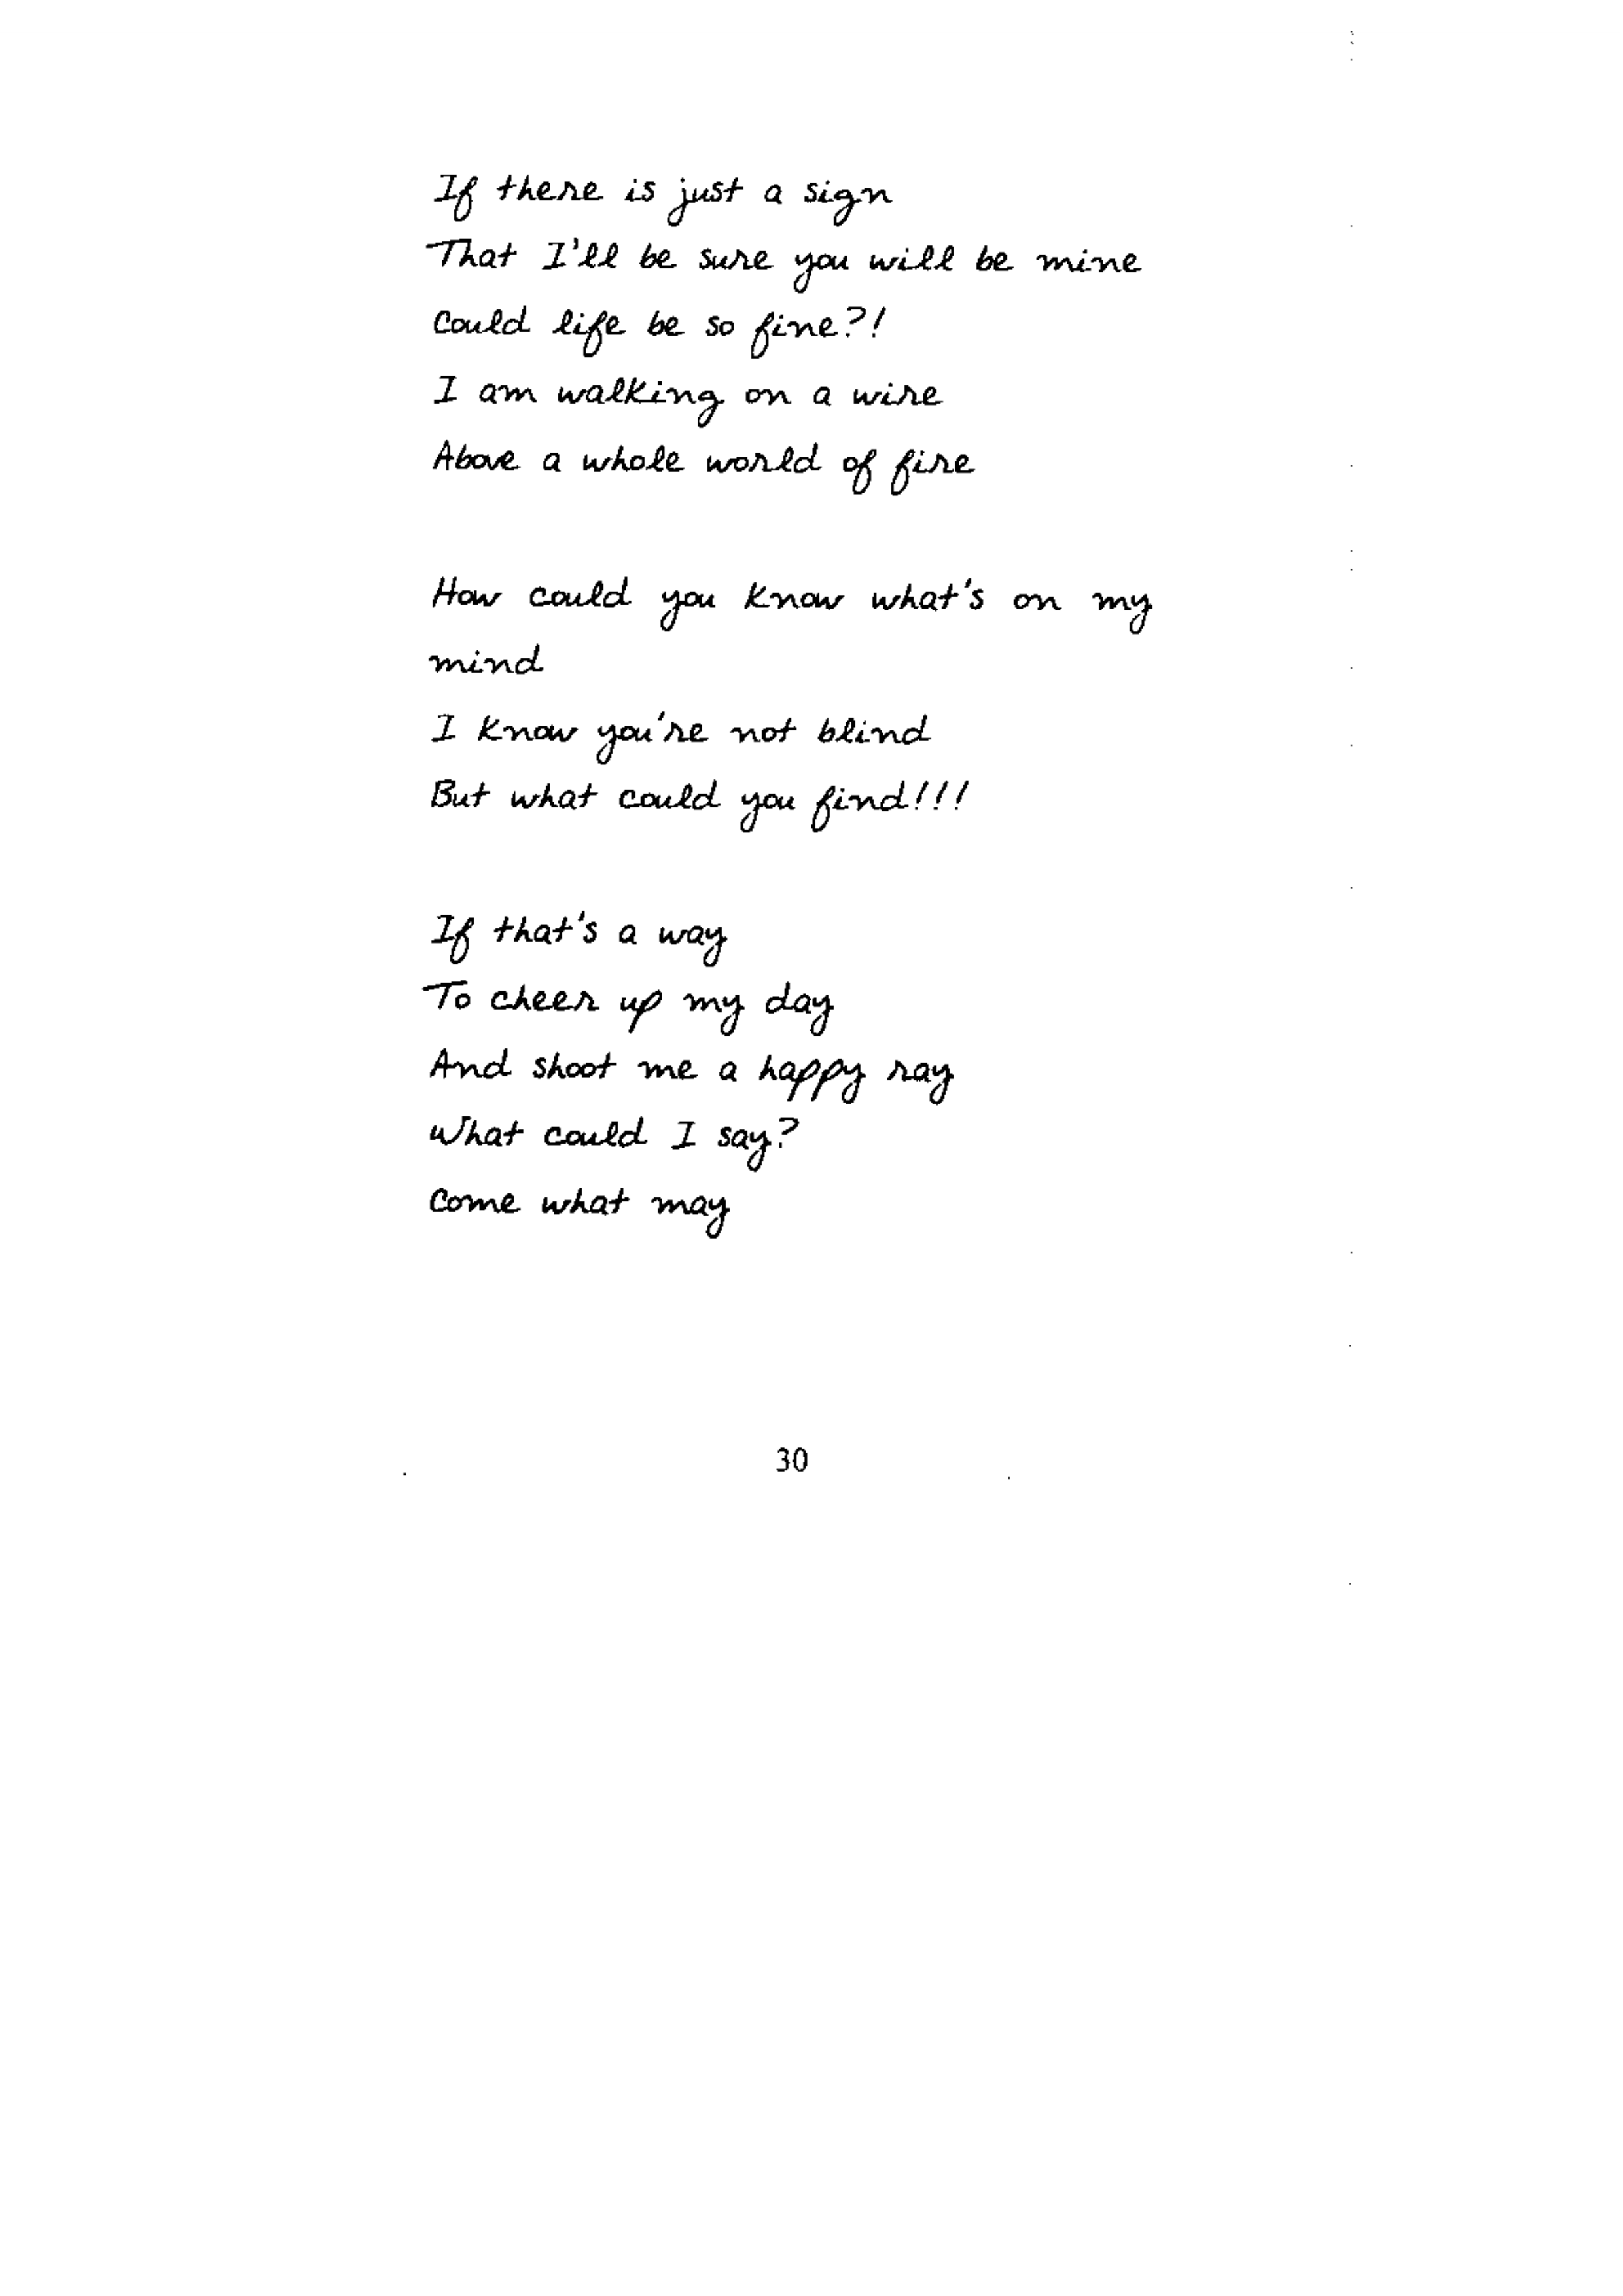 If there is just a sign
That I'll be sure you will be mine
Could life be so fine?!
I am walking on a wire
Above a whole world of fire
How could you know what's on my
mind
I know you're not blind
But what could you find!!!
If that's a way
To cheer up my day
And shoot me a happy ray
What could I say?
Come what may
30